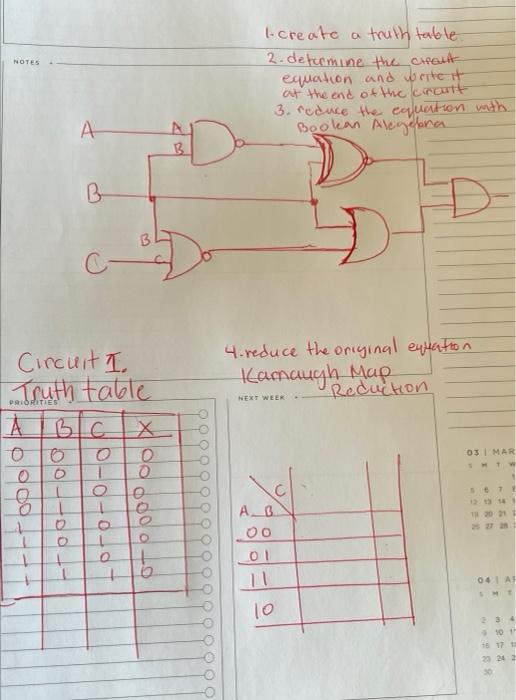 1. create a truth table
NOTES
2. determine the circuit
equation and write it
at the end of the circuit
3. reduce the equation with
Boolean Alegebra
A
A
B
B
B
C
C
Circuit I.
Truth table
PRIORITIES
A B C X
0 0 0 0
0 0 1 0
0 1 0 0
0 1 1 0
1 0 0 0
1 0 1 0
1 1 0 1
1 1 1 0
4. reduce the original equation
Karnaugh Map
Reduction
NEXT WEEK
C
A B
00
01
11
10
03 | MAR
S M T W
5 6 7
12 13 14
19 20 21
26 27 28
04 | A
S M T
2 3 4
9 10
16 17
23 24
30